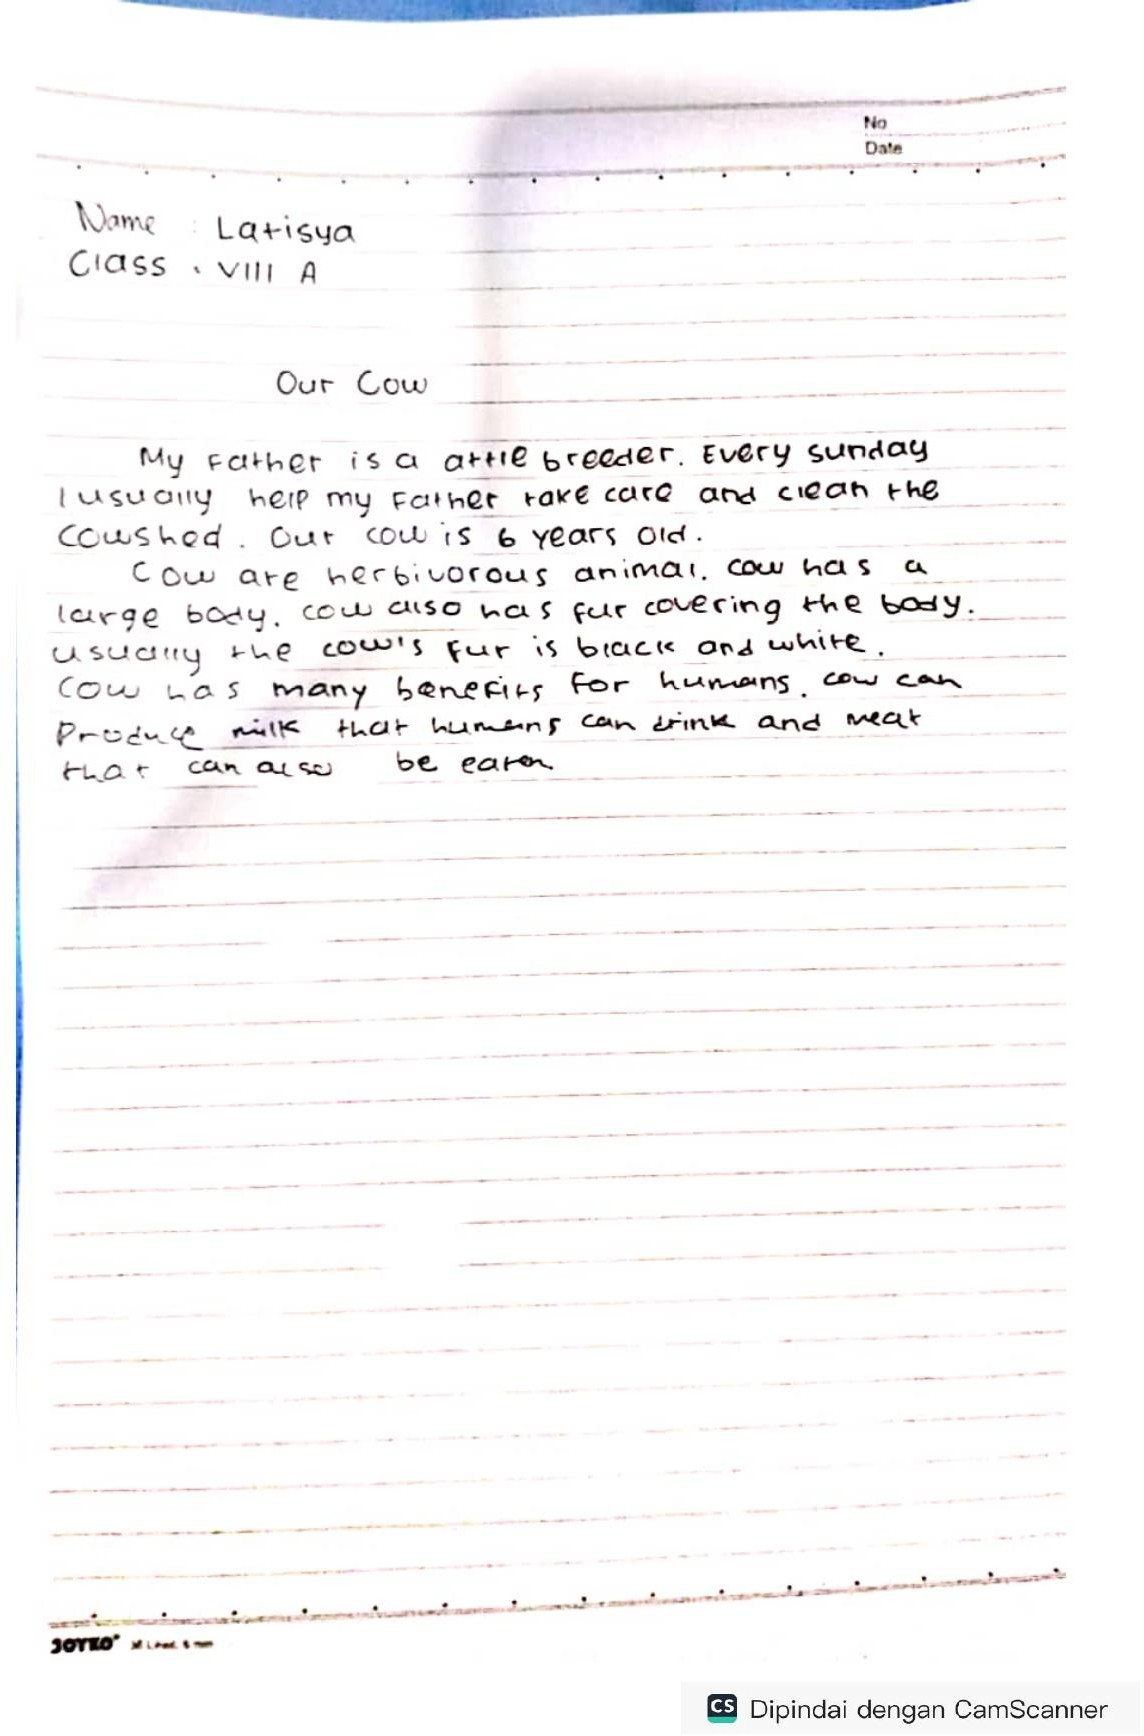 No
Date
Name : Latisya
Class . VIII A
Our Cow
My Father is a attle breeder. Every sunday
I usually help my Father take care and clean the
Cowshed. Our cow is 6 years old.
Cow are herbivorous animal. cow has a
large body. cow also has fur covering the body.
usually the cow's fur is black and white.
Cow has many benefits for humans. cow can
Produce milk that humans can drink and meat
that can also be eaten
JOYKO
CS Dipindai dengan CamScanner